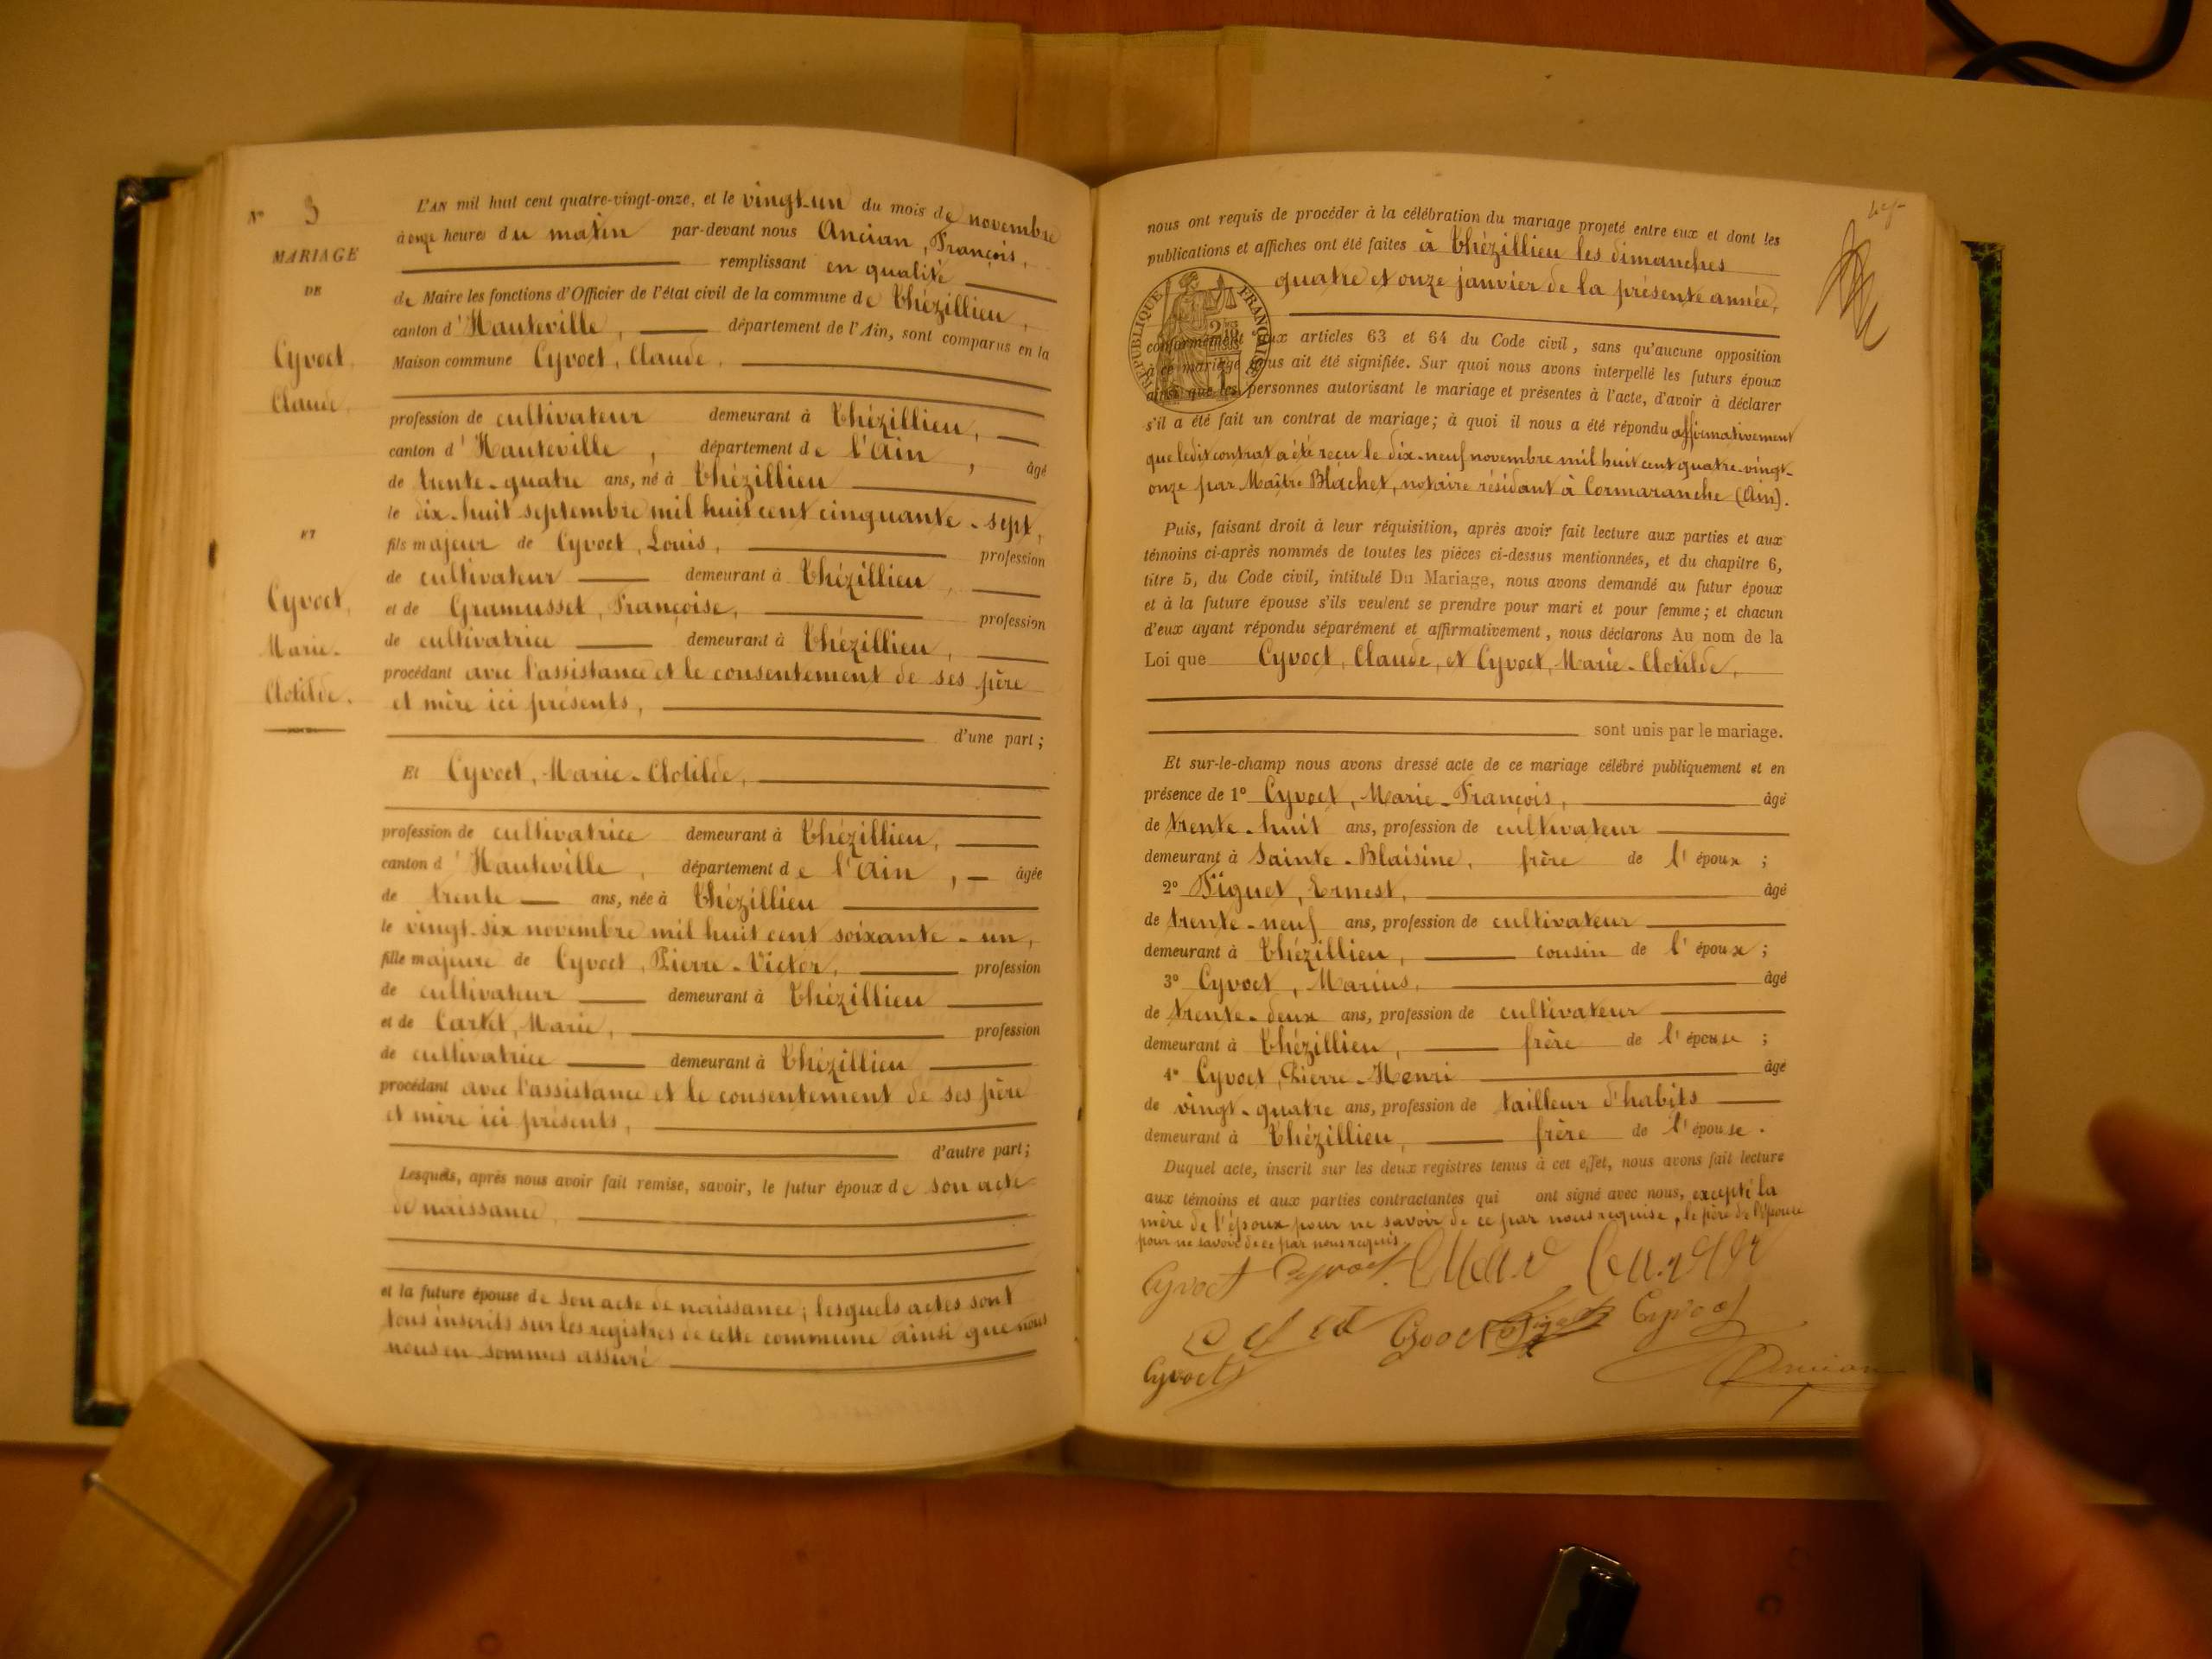 N° 3
MARIAGE
DE
Cyvoct,
Claude,
ET
Cyvoct,
Marie-
Clotilde.
L'AN mil huit cent quatre-vingt-onze, et le vingt-un du mois de novembre
à onze heures du matin par-devant nous Ancian, François,
remplissant en qualité
de Maire les fonctions d'Officier de l'état civil de la commune de Thézillieu,
canton d'Hauteville, département de l'Ain, sont comparus en la
Maison commune Cyvoct, Claude,
profession de cultivateur demeurant à Thézillieu,
canton d'Hauteville, département de l'Ain, âgé
de trente-quatre ans, né à Thézillieu
le dix-huit septembre mil huit cent cinquante-sept,
fils majeur de Cyvoct, Louis, profession
de cultivateur demeurant à Thézillieu,
et de Gramusset, Françoise, profession
de cultivatrice demeurant à Thézillieu,
procédant avec l'assistance et le consentement de ses père
et mère ici présents,
d'une part;
Et Cyvoct, Marie-Clotilde,
profession de cultivatrice demeurant à Thézillieu,
canton d'Hauteville, département de l'Ain, âgée
de trente ans, née à Thézillieu
le vingt-six novembre mil huit cent soixante-un,
fille majeure de Cyvoct, Pierre-Victor, profession
de cultivateur demeurant à Thézillieu
et de Cartet, Marie, profession
de cultivatrice demeurant à Thézillieu
procédant avec l'assistance et le consentement de ses père
et mère ici présents,
d'autre part;
Lesquels, après nous avoir fait remise, savoir, le futur époux de son acte
de naissance,
et la future épouse de son acte de naissance; lesquels actes sont
tous inscrits sur les registres de cette commune ainsi que nous
nous en sommes assuré
nous ont requis de procéder à la célébration du mariage projeté entre eux et dont les
publications et affiches ont été faites à Thézillieu les dimanches
quatre et onze janvier de la présente année,
RÉPUBLIQUE FRANÇAISE
conformément aux articles 63 et 64 du Code civil, sans qu'aucune opposition
à ce mariage nous ait été signifiée. Sur quoi nous avons interpellé les futurs époux
ainsi que les personnes autorisant le mariage et présentes à l'acte, d'avoir à déclarer
s'il a été fait un contrat de mariage; à quoi il nous a été répondu affirmativement
que ledit contrat a été reçu le dix-neuf novembre mil huit cent quatre-vingt-
onze par Maître Blachet, notaire résidant à Cormaranche (Ain).
Puis, faisant droit à leur réquisition, après avoir fait lecture aux parties et aux
témoins ci-après nommés de toutes les pièces ci-dessus mentionnées, et du chapitre 6,
titre 5, du Code civil, intitulé Du Mariage, nous avons demandé au futur époux
et à la future épouse s'ils veulent se prendre pour mari et pour femme; et chacun
d'eux ayant répondu séparément et affirmativement, nous déclarons Au nom de la
Loi que Cyvoct, Claude, et Cyvoct, Marie-Clotilde,
sont unis par le mariage.
Et sur-le-champ nous avons dressé acte de ce mariage célébré publiquement et en
présence de 1° Cyvoct, Marie-François, âgé
de trente-huit ans, profession de cultivateur
demeurant à Sainte-Blaisine, frère de l'époux;
2° Figuet, Ernest, âgé
de trente-neuf ans, profession de cultivateur
demeurant à Thézillieu, cousin de l'époux;
3° Cyvoct, Marius, âgé
de trente-deux ans, profession de cultivateur
demeurant à Thézillieu, frère de l'épouse;
4° Cyvoct, Pierre-Henri âgé
de vingt-quatre ans, profession de tailleur d'habits
demeurant à Thézillieu, frère de l'épouse.
Duquel acte, inscrit sur les deux registres tenus à cet effet, nous avons fait lecture
aux témoins et aux parties contractantes qui ont signé avec nous, excepté la
mère de l'époux pour ne savoir de ce par nous requise, le père de l'épouse
pour ne savoir de ce par nous requis.
Cyvoct Cyvoct
Cyvoct Cyvoct
Cyvoct Ancian